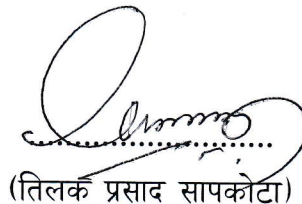 (तिलक प्रसाद सापकोटा)